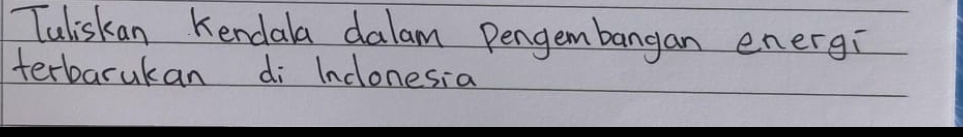 Tuliskan Kendala dalam Pengembangan energi
terbarukan di Indonesia